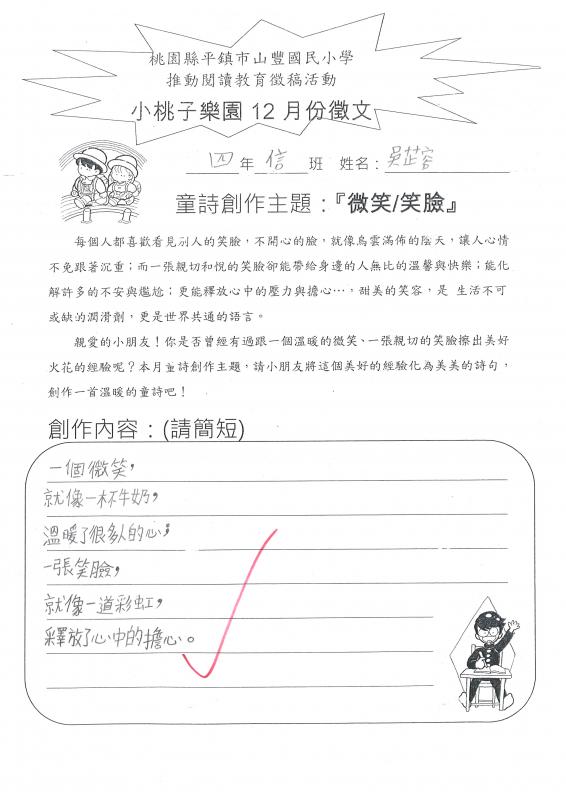 桃園縣平鎮市山豐國民小學
推動閱讀教育徵稿活動
小桃子樂園 12 月份徵文
四 年 信 班 姓名：吳芷容
童詩創作主題：『微笑/笑臉』
每個人都喜歡看見別人的笑臉，不開心的臉，就像烏雲滿佈的陰天，讓人心情
不免跟著沉重；而一張親切和悅的笑臉卻能帶給身邊的人無比的溫馨與快樂；能化
解許多的不安與尷尬；更能釋放心中的壓力與擔心…，甜美的笑容，是 生活不可
或缺的潤滑劑，更是世界共通的語言。
親愛的小朋友！你是否曾經有過跟一個溫暖的微笑、一張親切的笑臉擦出美好
火花的經驗呢？本月童詩創作主題，請小朋友將這個美好的經驗化為美美的詩句，
創作一首溫暖的童詩吧！
創作內容：(請簡短)
一個微笑，
就像一杯牛奶，
溫暖了很多人的心；
一張笑臉，
就像一道彩虹，
釋放了心中的擔心。